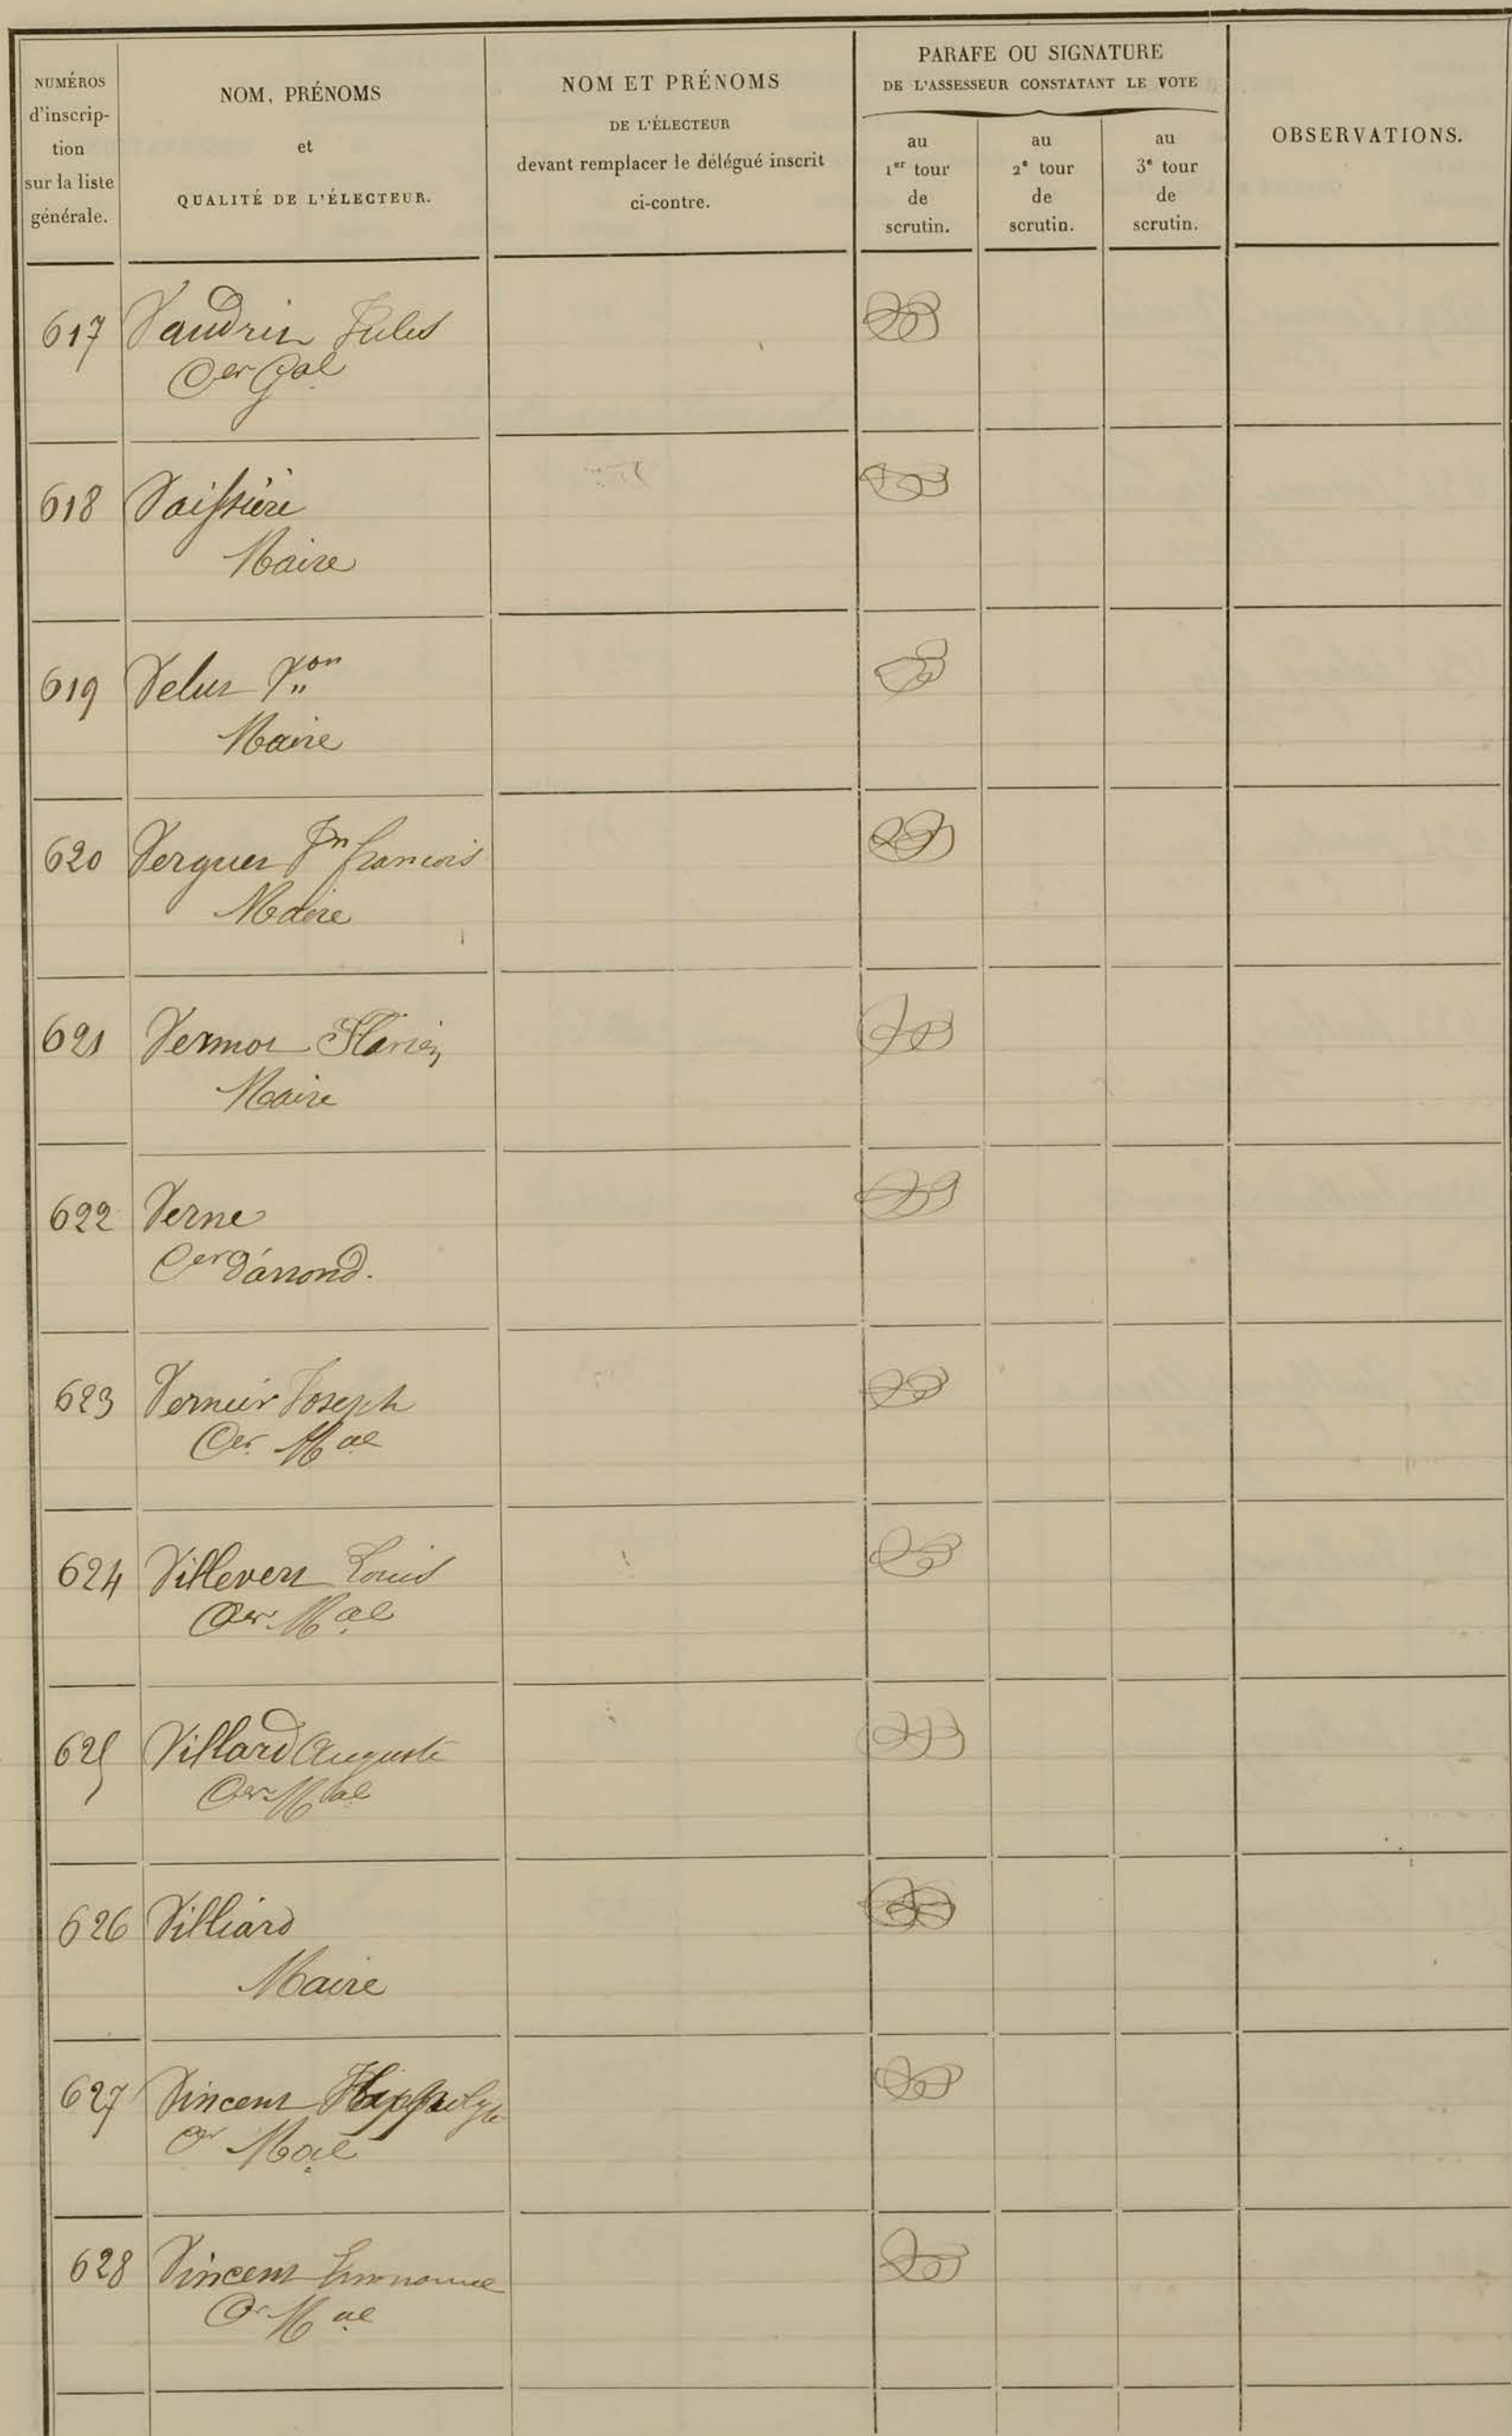 NUMÉROS
d'inscrip-
tion
sur la liste
générale.
NOM, PRÉNOMS
et
QUALITÉ DE L'ÉLECTEUR.
NOM ET PRÉNOMS
DE L'ÉLECTEUR
devant remplacer le délégué inscrit
ci-contre.
PARAFE OU SIGNATURE
DE L'ASSESSEUR CONSTATANT LE VOTE
au
1er tour
de
scrutin.
au
2e tour
de
scrutin.
au
3e tour
de
scrutin.
OBSERVATIONS.
617 Vaudrin Jules
Cer Gal
618 Vaissière
Maire
619 Velut
Maire
620 Verguet Jn françois
Maire
621 Vermot Flavien
Maire
622 Verne
Cer d'arrond.
623 Vernier Joseph
Cer Mal
624 Villevert Louis
Cer Mal
625 Villard Auguste
Cer Mal
626 Villiard
Maire
627 Vincent Hippolyte
Cr Mal
628 Vincent Emmanuel
Cr Mal